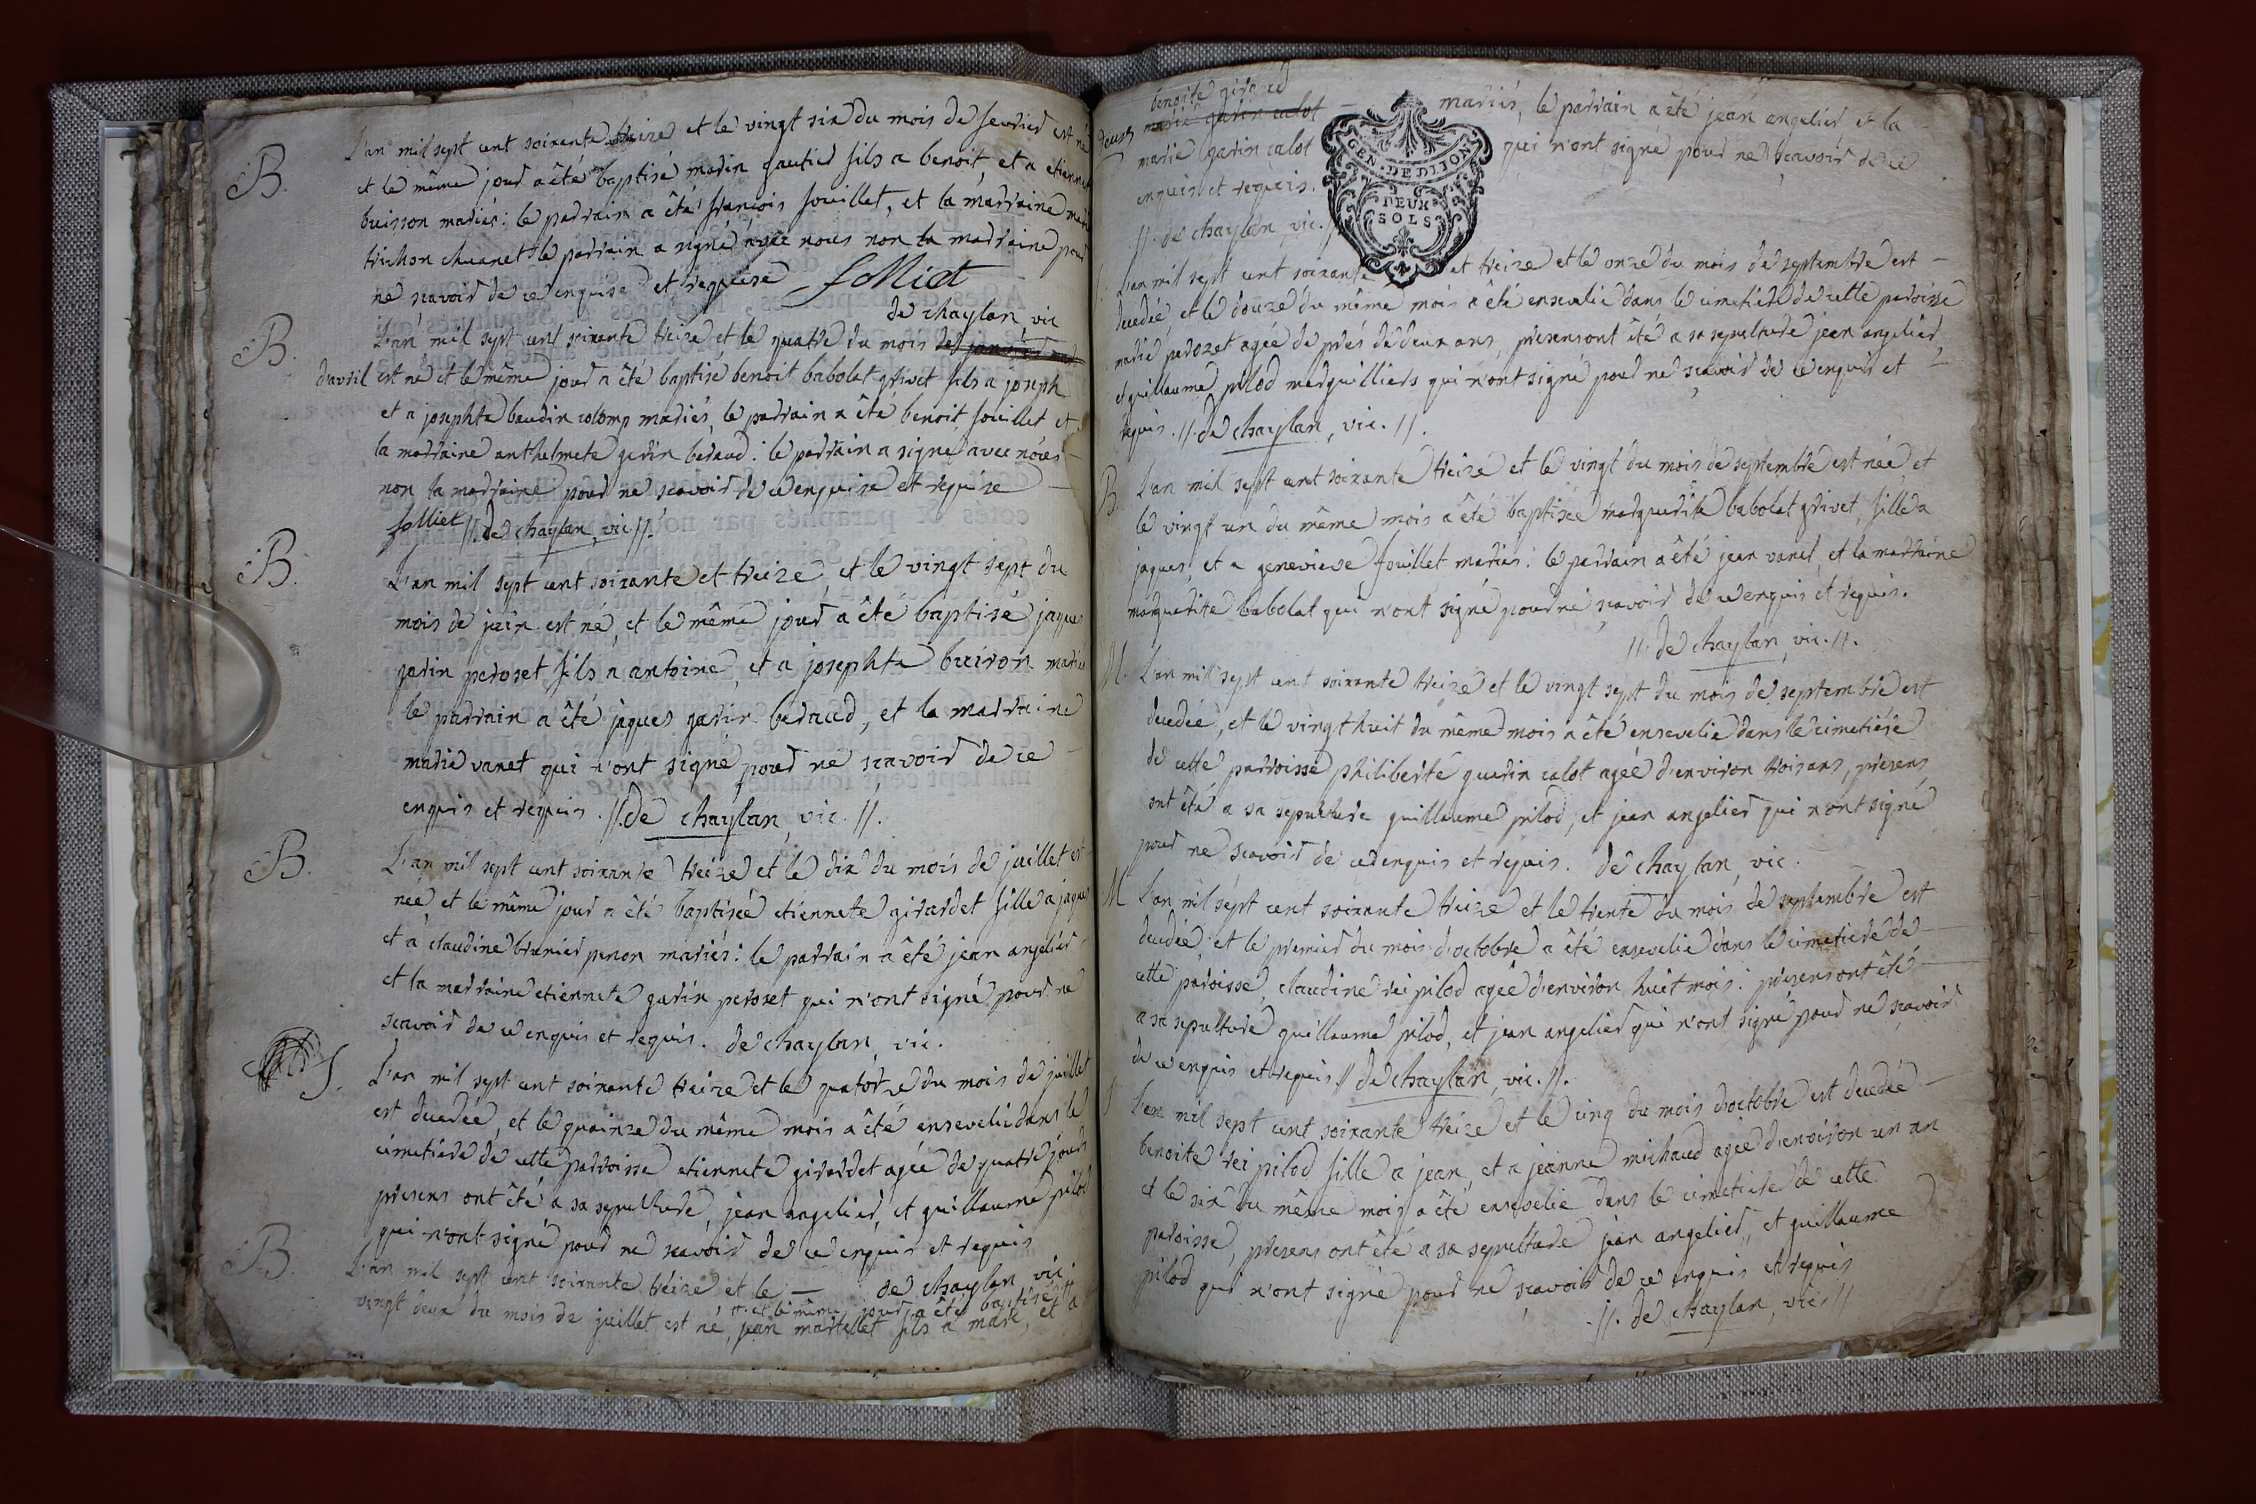 B. L'an mil sept cent soixante treize et le vingt six du mois de fevrier est né
et le même jour a êté baptisé marin gautier fils a benoit, et a etiennete
buisson mariés: le parrain a êté françois follliet, et la marraine
trichon chuanet le parrain a signé avec nous non la marraine pour
ne scavoir de ce enquise et requise folliet
de chaylan vic
B. L'an mil sept cent soixante treize et le quatre du mois
d'avril est né et le même jour a êté baptisé benoit babolat grivet fils a joseph
et a josephte baudin colomp mariés, le parrain a êté benoit folliet et
la marraine anthelmete garin beraud: le parrain a signé avec nous
non la marraine pour ne scavoir de ce enquise et requise
folliet //. de chaylan, vic //.
B. L'an mil sept cent soixante et treize, et le vingt sept du
mois de juin est né, et le même jour a êté baptisé jaques
garin peroset fils a antoine, et a josephte buiron mariés
le parrain a êté jaques garin beraud, et la marraine
marie vanet qui n'ont signé pour ne scavoir de ce
enquis et requis. //. de chaylan, vic. //.
B. L'an mil sept cent soixante treize et le dix du mois de juillet est
née et le même jour a êté baptisée etiennete girardet fille a jaques
et a claudine brunier peron mariés: le parrain a êté jean angelier
et la marraine etiennete garin peroset qui n'ont signé pour ne
scavoir de ce enquis et requis. de chaylan, vic.
S. L'an mil sept cent soixante treize et le quatorze du mois de juillet
est decedée, et le quainze du même mois a êté ensevelie dans le
cimetiere de cette parroisse etiennete girardet agée de quatre jours
presens ont êté a sa sepulture, jean angelier, et guillaume pilod
qui n'ont signé pour ne scavoir de ce enquis et requis
de chaylan, vic. //
B. L'an mil sept cent soixante treize et le —
et le même jour a êté baptisé
vingt deux du mois de juillet est né, jean martellet fils a marc, et a
benoite girard
marie garin calot — mariés, le parrain a êté jean angelier, et la
marie garin calot qui n'ont signé pour ne scavoir de ce
enquis et requis.
//. de chaylan, vic. //
GEN. DE DIJON
DEUX
SOLS
L'an mil sept cent soixante et treize et le onze du mois de septembre est —
decedée et le douze du même mois a êté ensevelie dans le cimetiere de cette paroisse
marie perozet agée de prés de deux ans, presens ont êté a sa sepulture jean angelier,
et guillaume pilod marguilliers qui n'ont signé pour ne scavoir de ce enquis et —
requis. //. de chaylan, vic. //.
B. L'an mil sept cent soixante treize et le vingt du mois de septembre est née et
le vingt un du même mois a êté baptisée marguerite babolat grivet, fille a
jaques, et a genevieve folliet mariés: le parrain a êté jean vanet, et la marraine
marguerite babolat qui n'ont signé pour ne scavoir de ce enquis et requis.
//. de chaylan, vic. //.
M. L'an mil sept cent soixante treize et le vingt sept du mois de septembre est
decedée, et le vingt huit du même mois a êté ensevelie dans le cimetiére
de cette parroisse philiberte guerin calot agée d'environ trois ans, presens
ont êté a sa sepulture guillaume pilod, et jean angelier qui n'ont signé
pour ne scavoir de ce enquis et requis. de chaylan, vic.
M L'an mil sept cent soixante treize et le trente du mois de septembre est
decedée, et le premier du mois d'octobre a êté ensevelie dans le cimetiere de —
cette paroisse, claudine rei pilod agée d'environ huit mois: presens ont êté —
a sa sepulture guillaume pilod, et jean angelier qui n'ont signé pour ne scavoir
de ce enquis et requis // de chaylan, vic. //.
S L'an mil sept cent soixante treize et le cinq du mois d'octobre est decedée —
benoite rei pilod fille a jean, et a jeanne michaud agée d'environ un an
et le six du même mois a êté ensevelie dans le cimetiere de cette
paroisse, presens ont êté a sa sepulture jean angelier, et guillaume
pilod qui n'ont signé pour ne scavoir de ce enquis et requis
//. de chaylan, vic. //